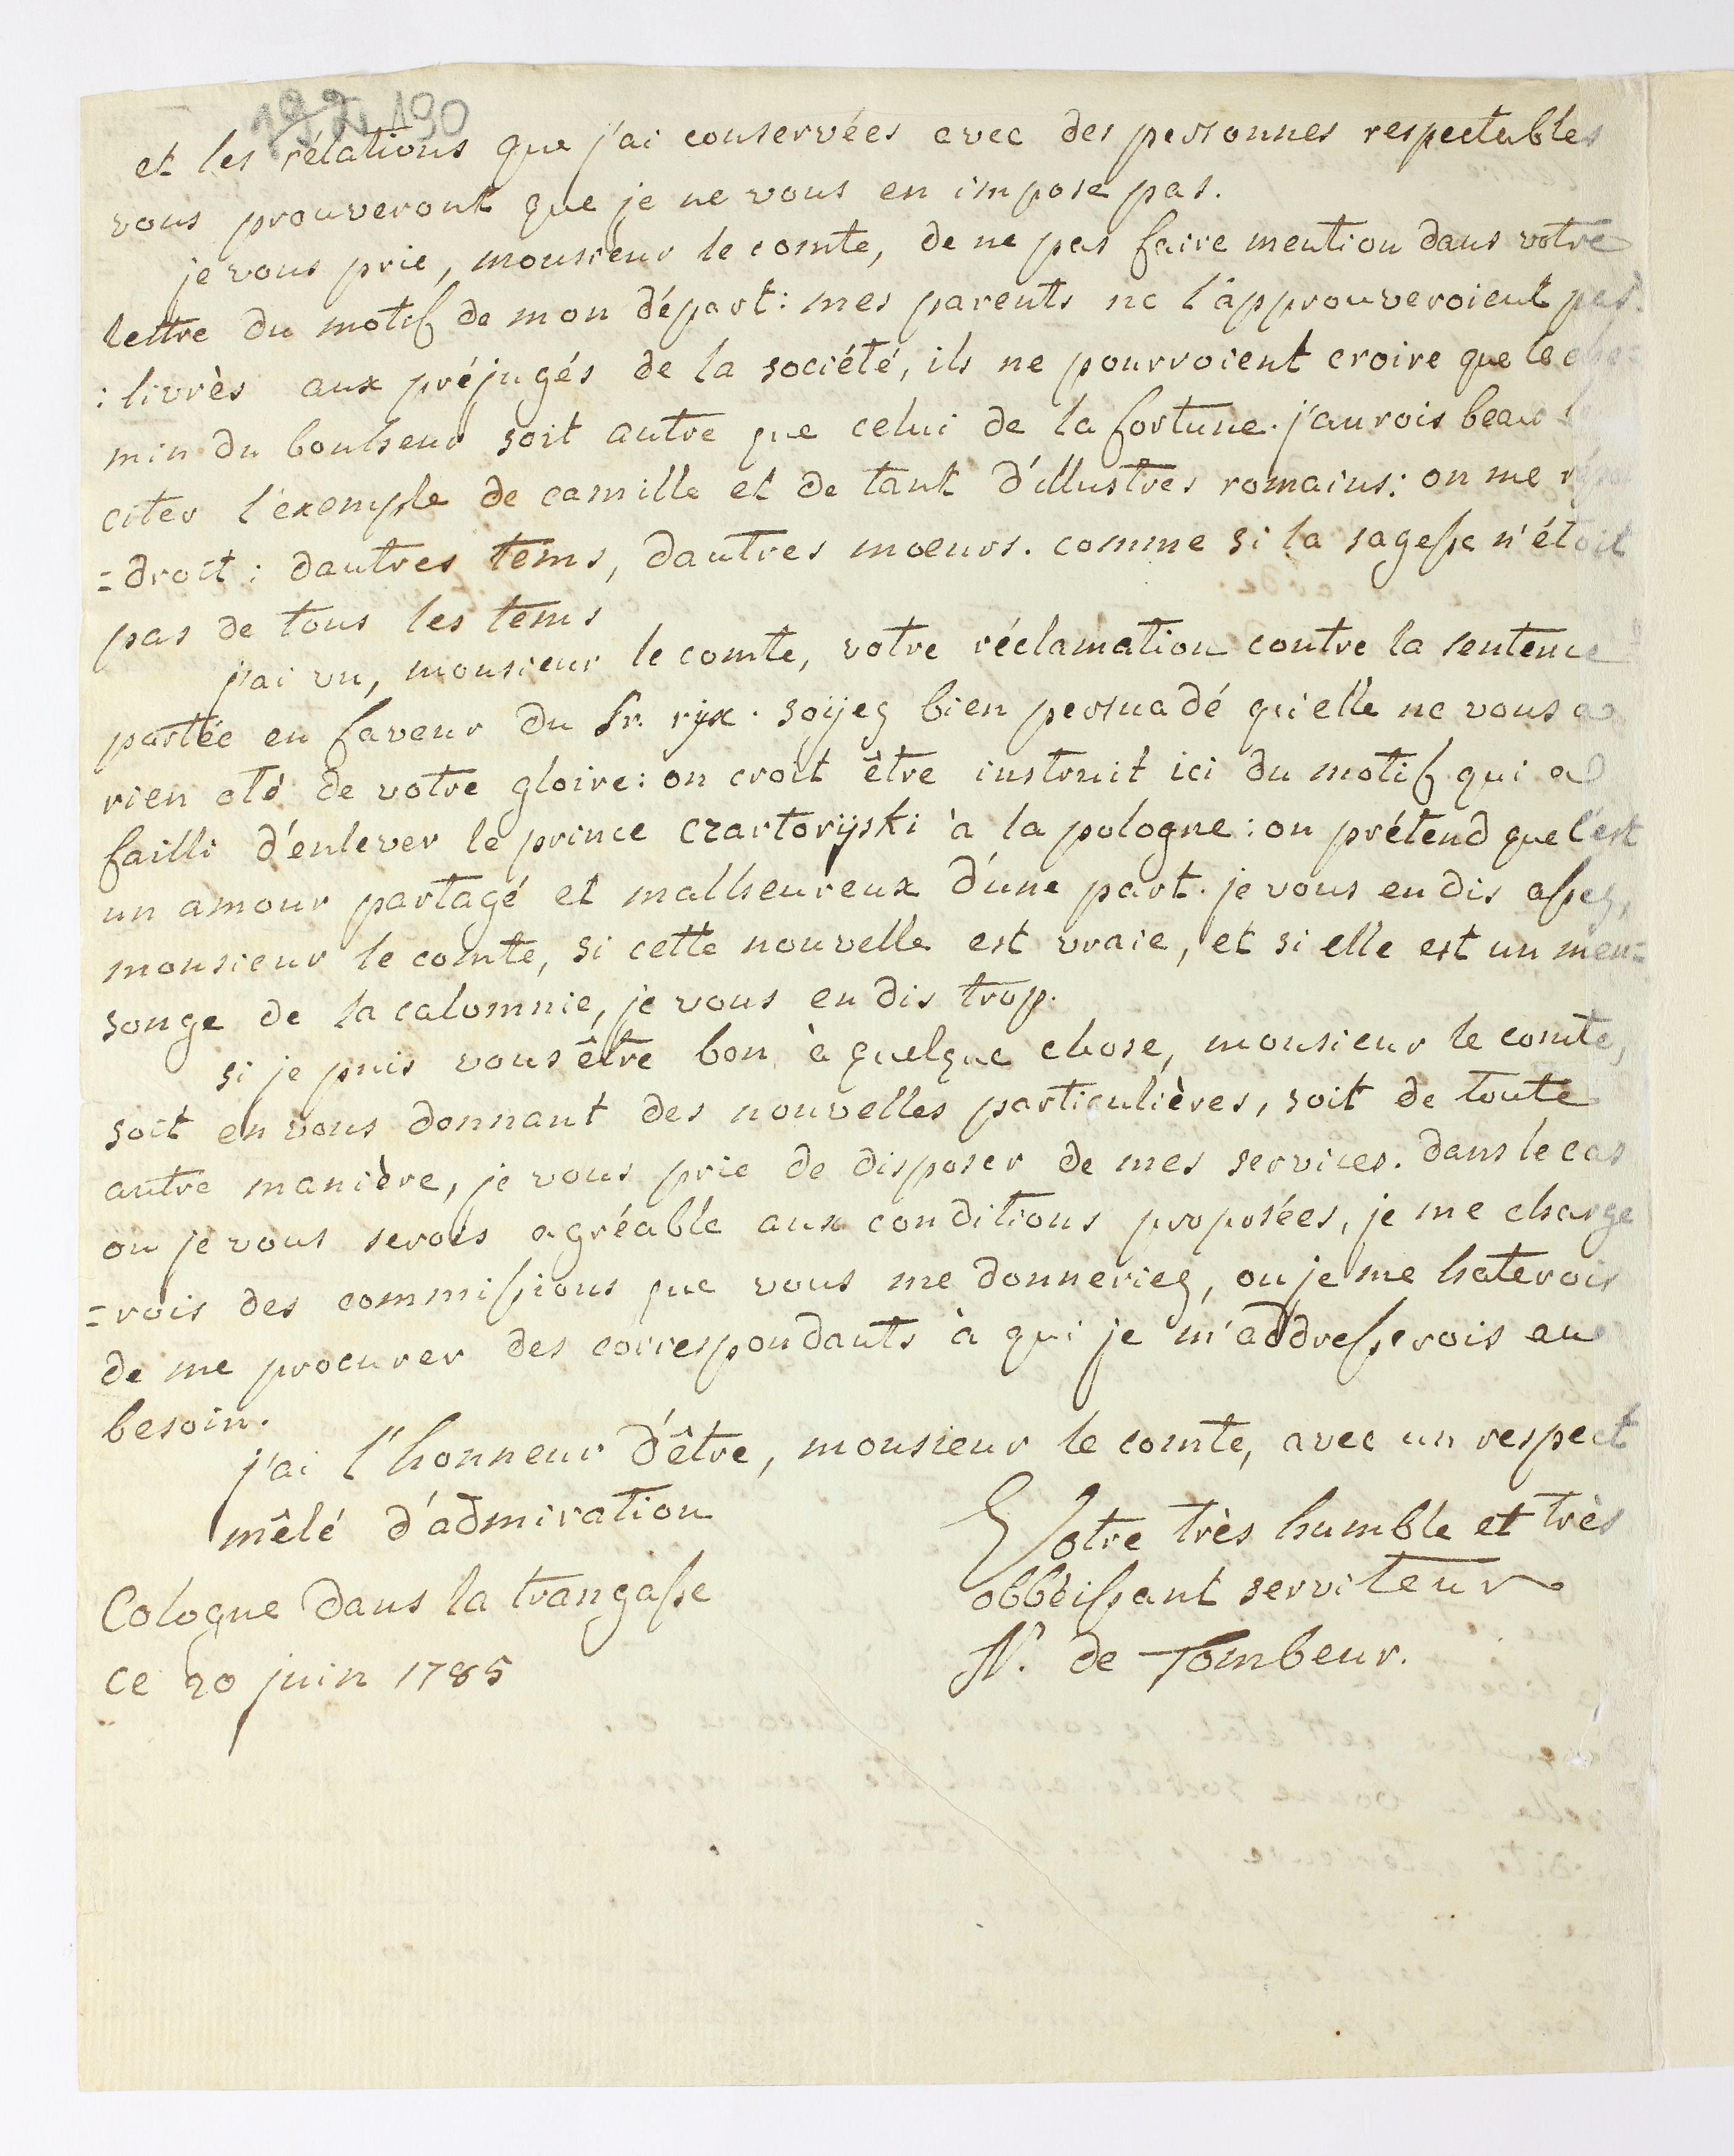 190
et les rélations que j'ai conservées avec des personnes respectables
vous prouveront que je ne vous en impose pas.
je vous prie, monsieur le comte, de ne pas faire mention dans votre
lettre du motif de mon départ: mes parents ne l'approuveroient pas.
: livrès aux préjugés de la société, ils ne pourroient croire que le che=
min du bonheur soit autre que celui de la fortune. j'aurois beau
citer l'exemple de camille et de tant d'illustres romains: on me répon
=droit: dautres tems, dautres moeurs. comme si la sagesse n'étoit
pas de tous les tems
j'ai vu, monsieur le comte, votre réclamation contre la sentence
portée en faveur du Sr. rijx. soijez bien persuadé qu'elle ne vous a
rien oté de votre gloire: on croit être instruit ici du motif qui a
failli d'enlever le prince czartorijski à la pologne: on prétend que c'est
un amour partagé et malheureux d'une part. je vous en dis assez,
monsieur le comte, si cette nouvelle est vraie, et si elle est un men=
songe de la calomnie, je vous en dis trop.
si je puis vous être bon à quelque chose, monsieur le comte,
soit en vous donnant des nouvelles particulières, soit de toute
autre manière, je vous prie de disposer de mes services. dans le cas
ou je vous serois agréable aux conditions proposées, je me charge
=rois des commissions que vous me donneriez, ou je me haterois
de me procurer des correspondants à qui je m'addresserois au
besoin.
j'ai l'honneur d'être, monsieur le comte, avec un respect
mêlé d'admiration
Votre très humble et très
obbéissant serviteur
N. de Tombeur.
Cologne dans la trangasse
ce 20 juin 1785